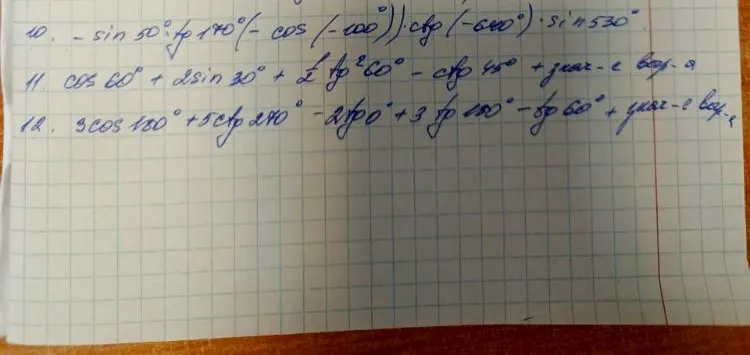 10. - sin 50° · tg 170° (- cos (-100°)) · ctg (-640°) · sin 530°
11. cos 60° + 2 sin 30° + 1/2 tg² 60° - ctg 45° + знач-е выр-я
12. 3 cos 180° + 5 ctg 270° - 2 tg 0° + 3 tg 180° - tg 60° + знач-е выр-я